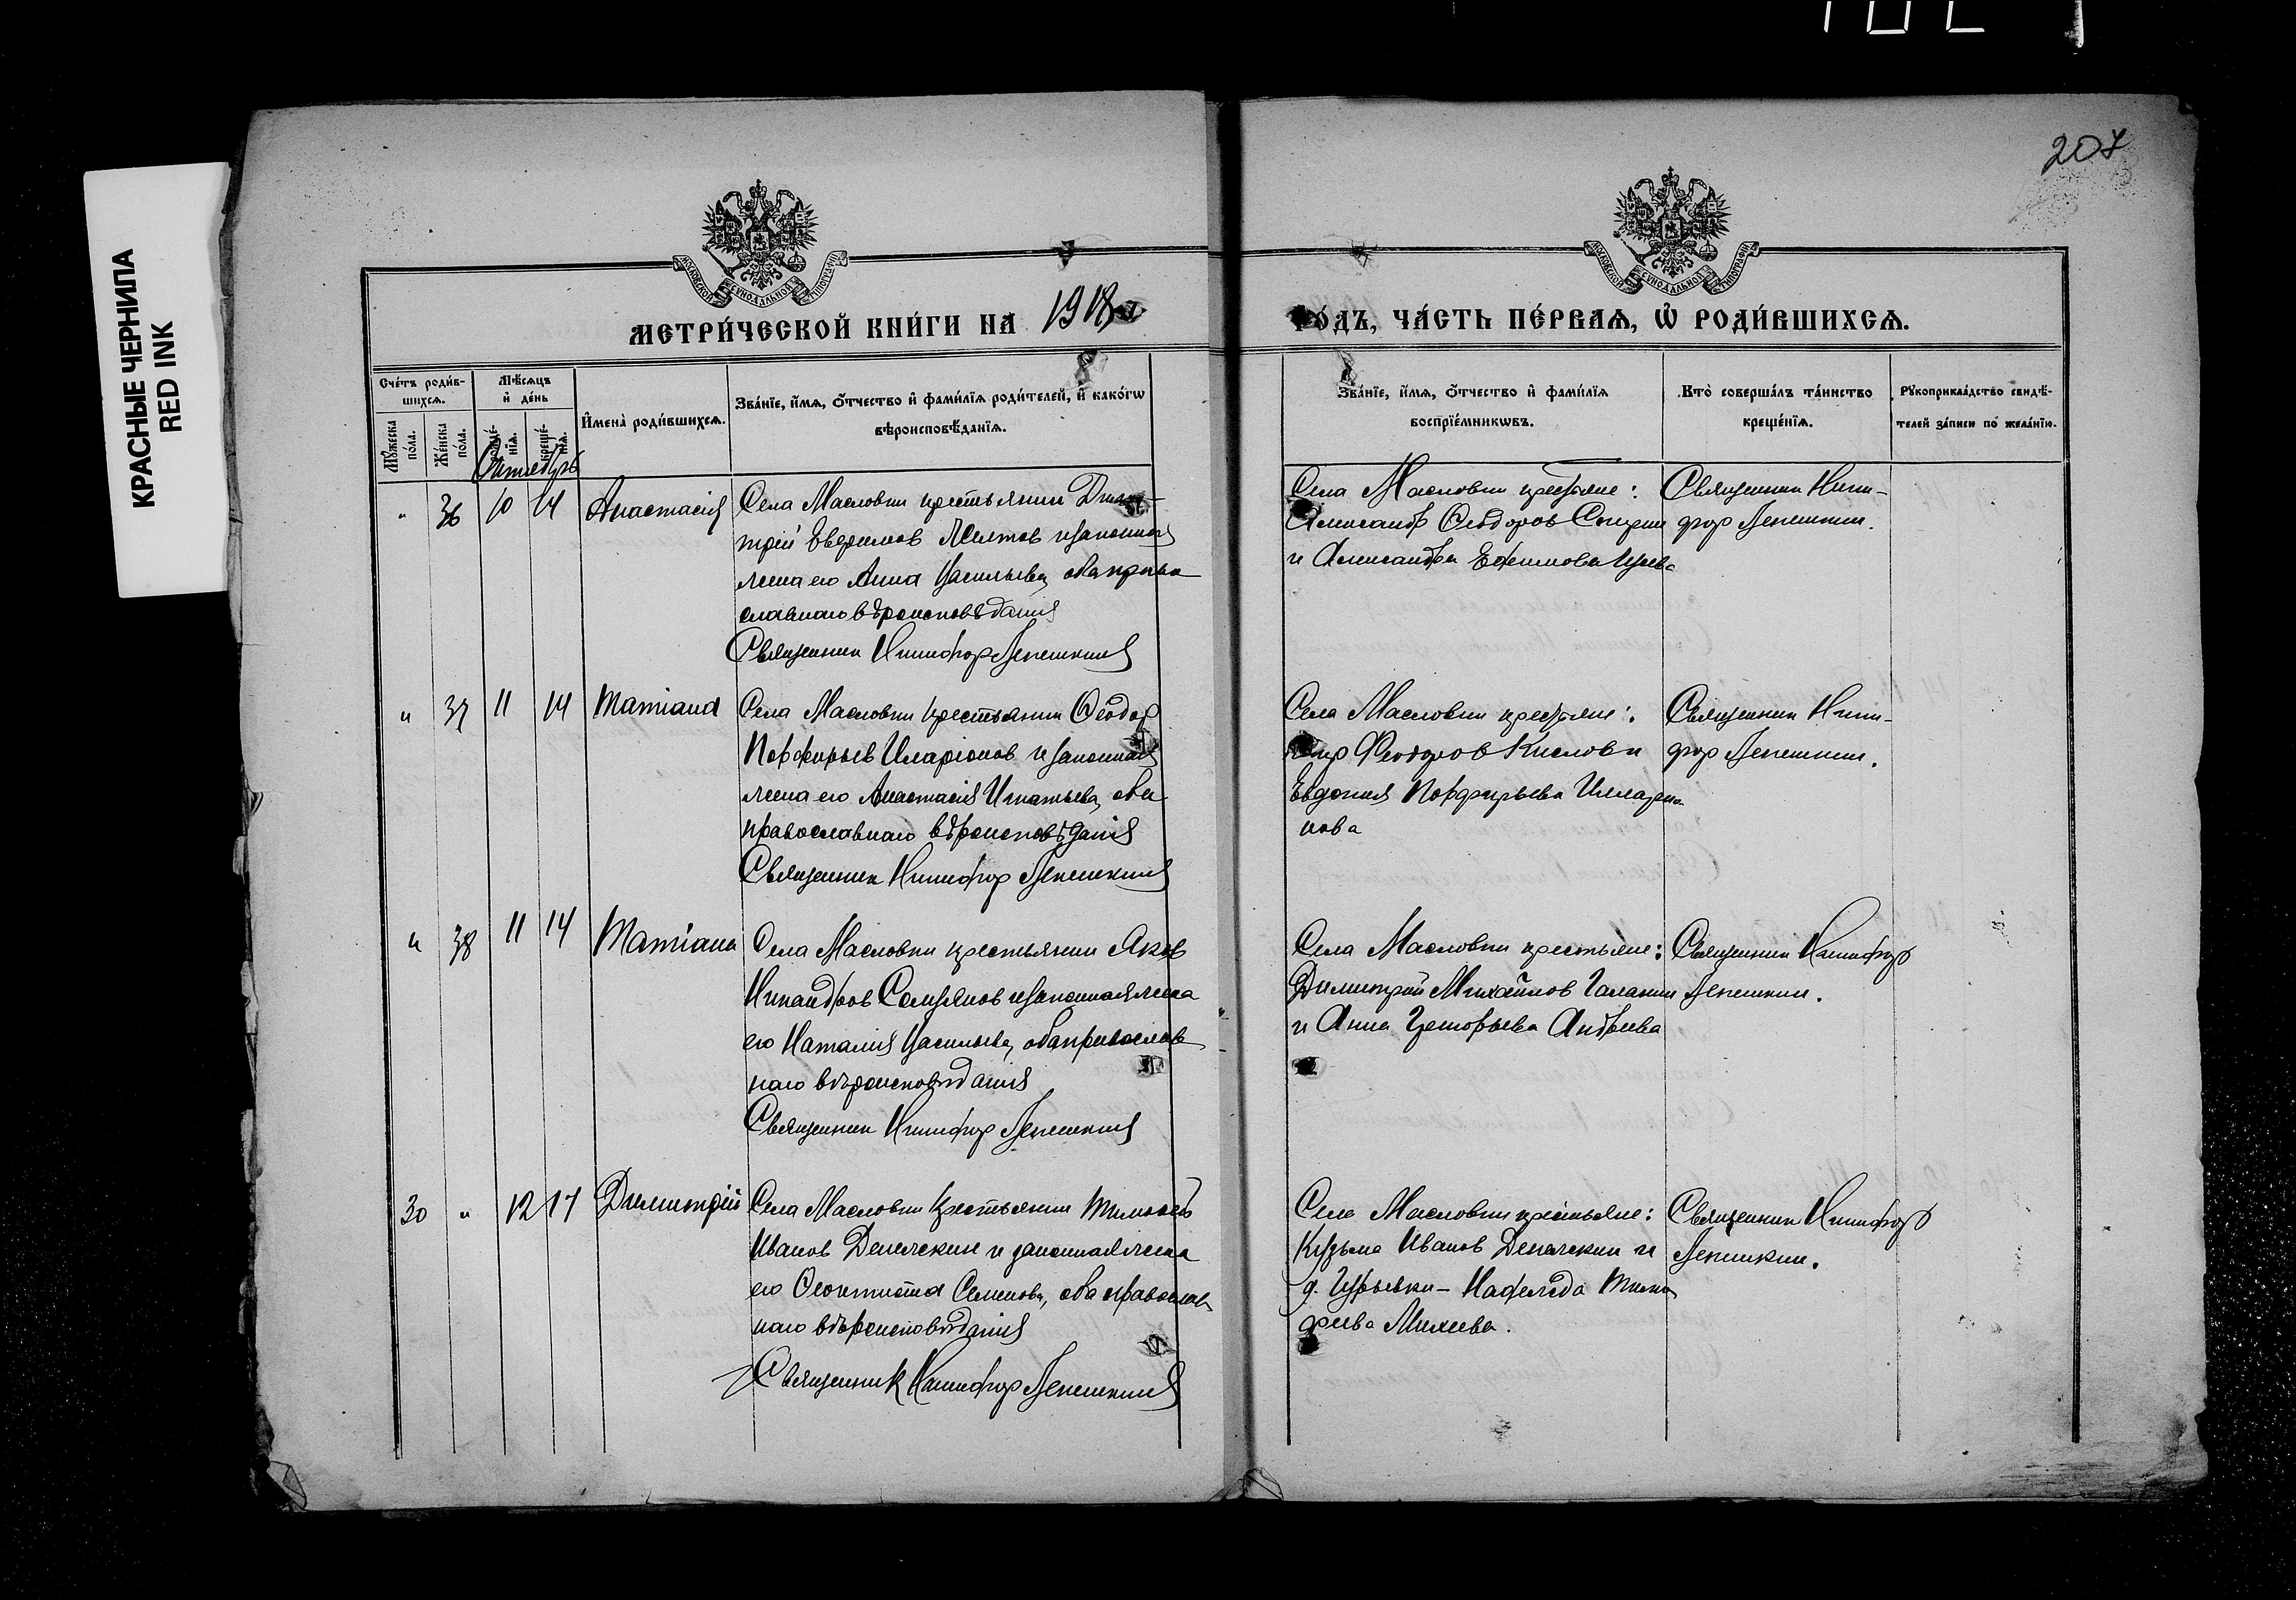 207
КРАСНЫЕ ЧЕРНИЛА
RED INK
МОСКОВСКОЙ СѴНОДАЛЬНОЙ ТИПОГРАФІИ
МОСКОВСКОЙ СѴНОДАЛЬНОЙ ТИПОГРАФІИ
МЕТРИ́ЧЕСКОЙ КНИ́ГИ НА 1918
ГО́ДЪ, ЧА́СТЬ ПЕ́РВАѦ, Ѡ҆ РОДИ́ВШИХСѦ.
Сче́тъ роди́в-
шихсѧ.
Мꙋ́жеска по́ла.
Же́нска по́ла.
Мѣ́сѧцъ
и҆ де́нь
рожде́-
нїѧ.
креще́-
нїѧ.
И҆мена̀ роди́вшихсѧ.
Зва́нїе, и҆́мѧ, ѻ҆́тчество и҆ фами́лїѧ роди́телей, и҆ како́гѡ
вѣроисповѣ́данїѧ.
Зва́нїе, и҆́мѧ, ѻ҆́тчество и҆ фами́лїѧ
воспрїе́мникѡвъ.
Кто̀ соверша́лъ та́инство
креще́нїѧ.
Рꙋкоприкла́дство свидѣ́-
телей за́писи по жела́нїю.
Октябрь
" 36 10 14 Анастасія
Села Масловки крестьянин Дими-
трий Евфимов и законная
жена его Анна Васильева, оба право
славнаго вѣроисповѣданія
Священник Никифор Лепешкин
Села Масловки крестьяне:
Александр Феодоров
и Александра Ефимова
Священник Ники-
фор Лепешкин.
" 37 11 14 Татіана
Села Масловки крестьянин Феодор
Порфирьев Иларіонов и законная
жена его Анастасія Игнатьева, оба
православнаго вѣроисповѣданія
Священник Никифор Лепешкин
Села Масловки крестьяне:
Феодоров Кислов и
Евдокия Порфирьева Илларио
нова
Священник Ники-
фор Лепешкин.
" 38 11 14 Татіана
Села Масловки крестьянин Яков
Никандров и законная жена
его Наталия Васильева, оба православ
наго вѣроисповѣданія
Священник Никифор Лепешкин
Села Масловки крестьяне:
Димитрий Михайлов Галакин
и Анна Григорьева Андреева
Священник Никифор
Лепешкин.
30 " 12 17 Димитрій
Села Масловки крестьянин Тимофей
Иванов Денежкин и законная жена
его Феоктиста Семенова, оба православ
наго вѣроисповѣданія
Священник Никифор Лепешкин
Села Масловки крестьяне:
Кузьма Иванов Денежкин и
д. Надежда Тимо
феева Михеева.
Священник Никифор
Лепешкин.